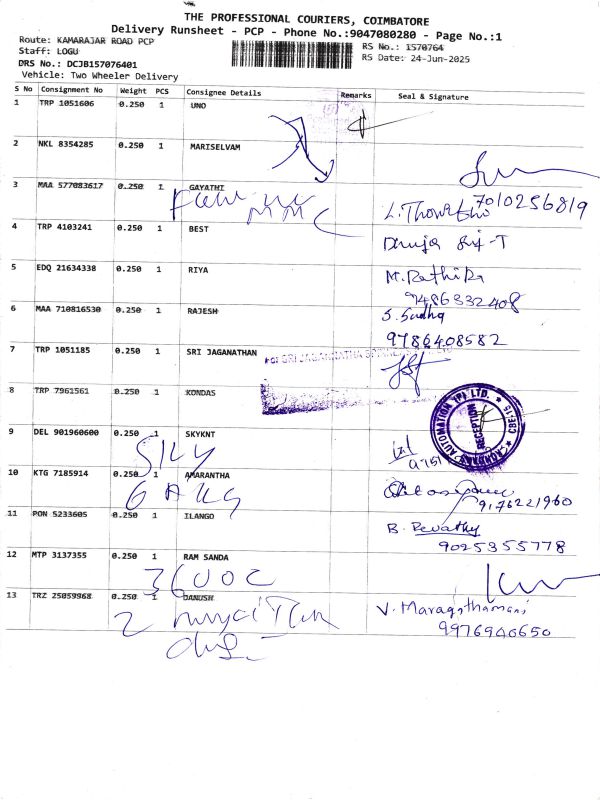 THE PROFESSIONAL COURIERS, COIMBATORE
Delivery Runsheet - PCP - Phone No.:9047080280 - Page No.:1
Route: KAMARAJAR ROAD PCP
RS No.: 1570764
Staff: LOGU
RS Date: 24-Jun-2025
DRS No.: DCJB157076401
Vehicle: Two Wheeler Delivery
S No Consignment No Weight PCS Consignee Details Remarks Seal & Signature
1 TRP 1051606 0.250 1 UNO
2 NKL 8354285 0.250 1 MARISELVAM
3 MAA 577083617 0.250 1 GAYATHI
7010256819
4 TRP 4103241 0.250 1 BEST
5 EDQ 21634338 0.250 1 RIYA
M. Rathika
9486332408
6 MAA 710816530 0.250 1 RAJESH
S. Sudha
9786408582
7 TRP 1051185 0.250 1 SRI JAGANATHAN
8 TRP 7961561 0.250 1 KONDAS
AUTOMATION (P) LTD.
RECEPTION
CBE-15
9 DEL 901960600 0.250 1 SKYKNT
9751
10 KTG 7185914 0.250 1 AMARANTHA
9176221960
11 PON 5233605 0.250 1 ILANGO
B. Revathy
9025355778
12 MTP 3137355 0.250 1 RAM SANDA
13 TRZ 25059968 0.250 1 DANUSH
V. Maragathamani
9976940650